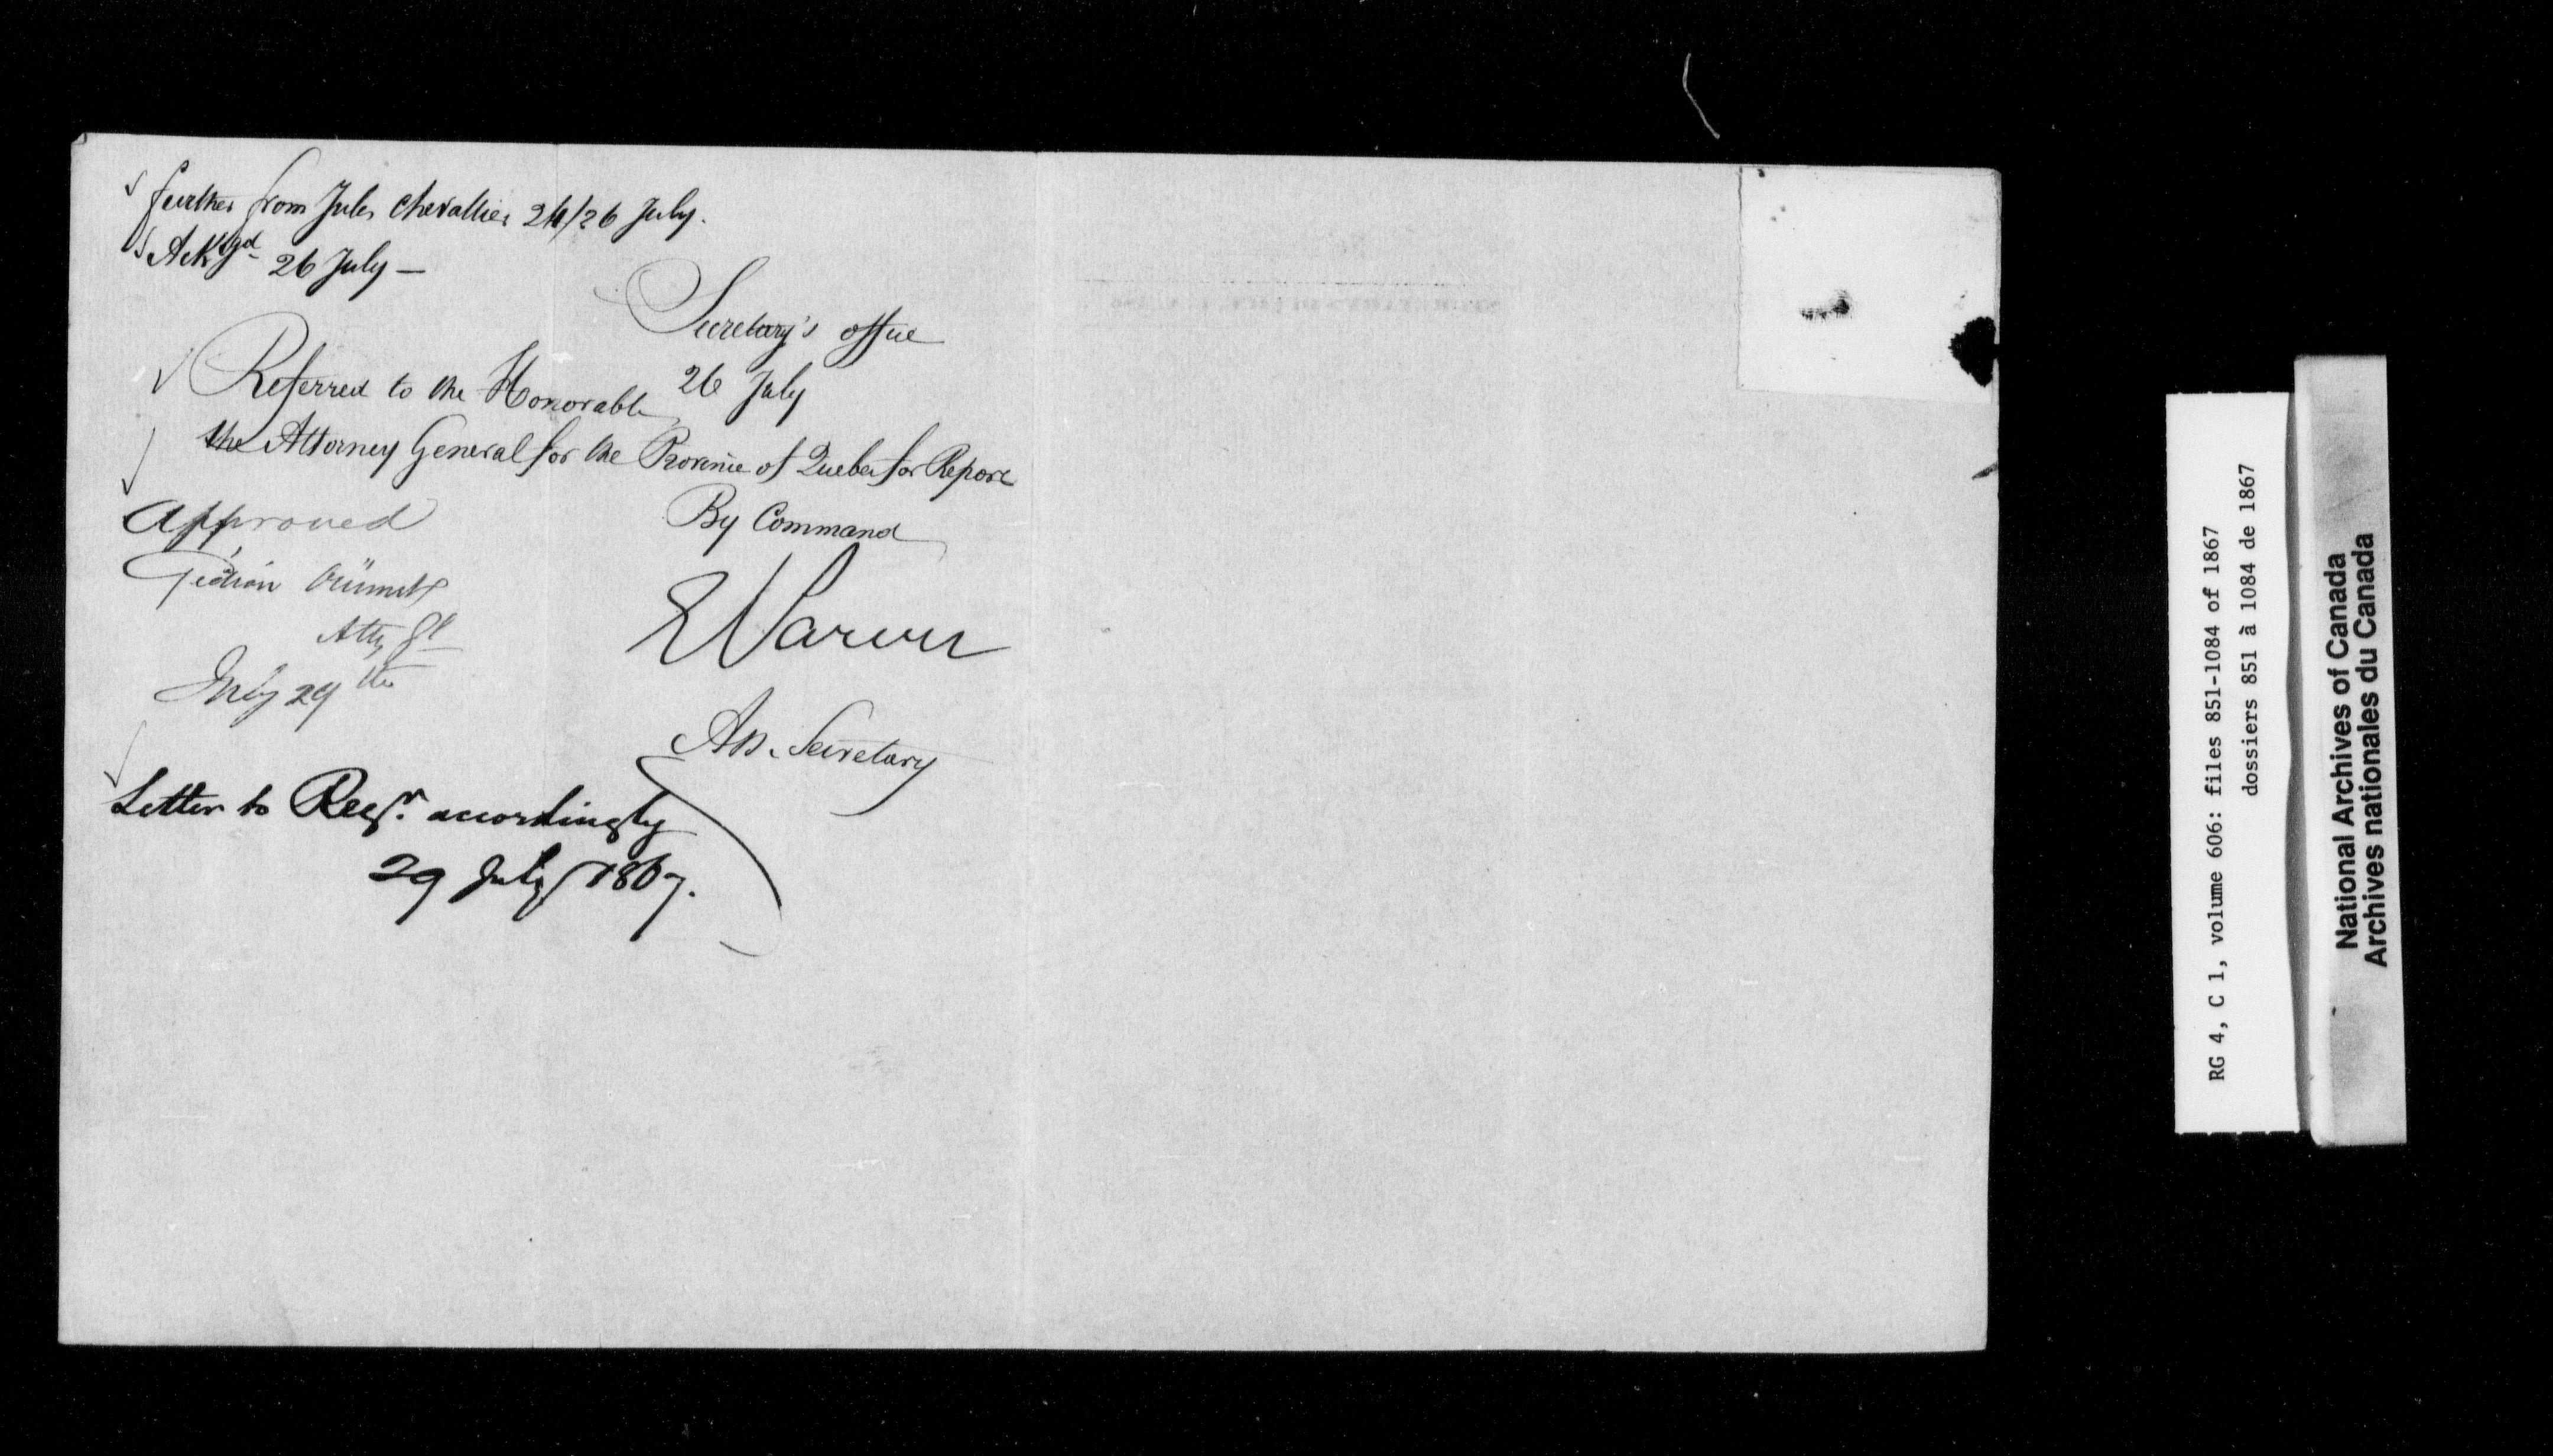 further from Jules Chevallier 24/26 July.
Ackgd 26 July —
Secretary's office
26 July
Referred to the Honorable
the Attorney General for the Province of Quebec for Report
By Command
E Parent
Ass. Secretary
Approved
Gédéon Ouimet
Atty Gl
July 29th
Letter to Regr. accordingly
29 July 1867.
RG 4, C 1, volume 606: files 851-1084 of 1867
dossiers 851 à 1084 de 1867
National Archives of Canada
Archives nationales du Canada